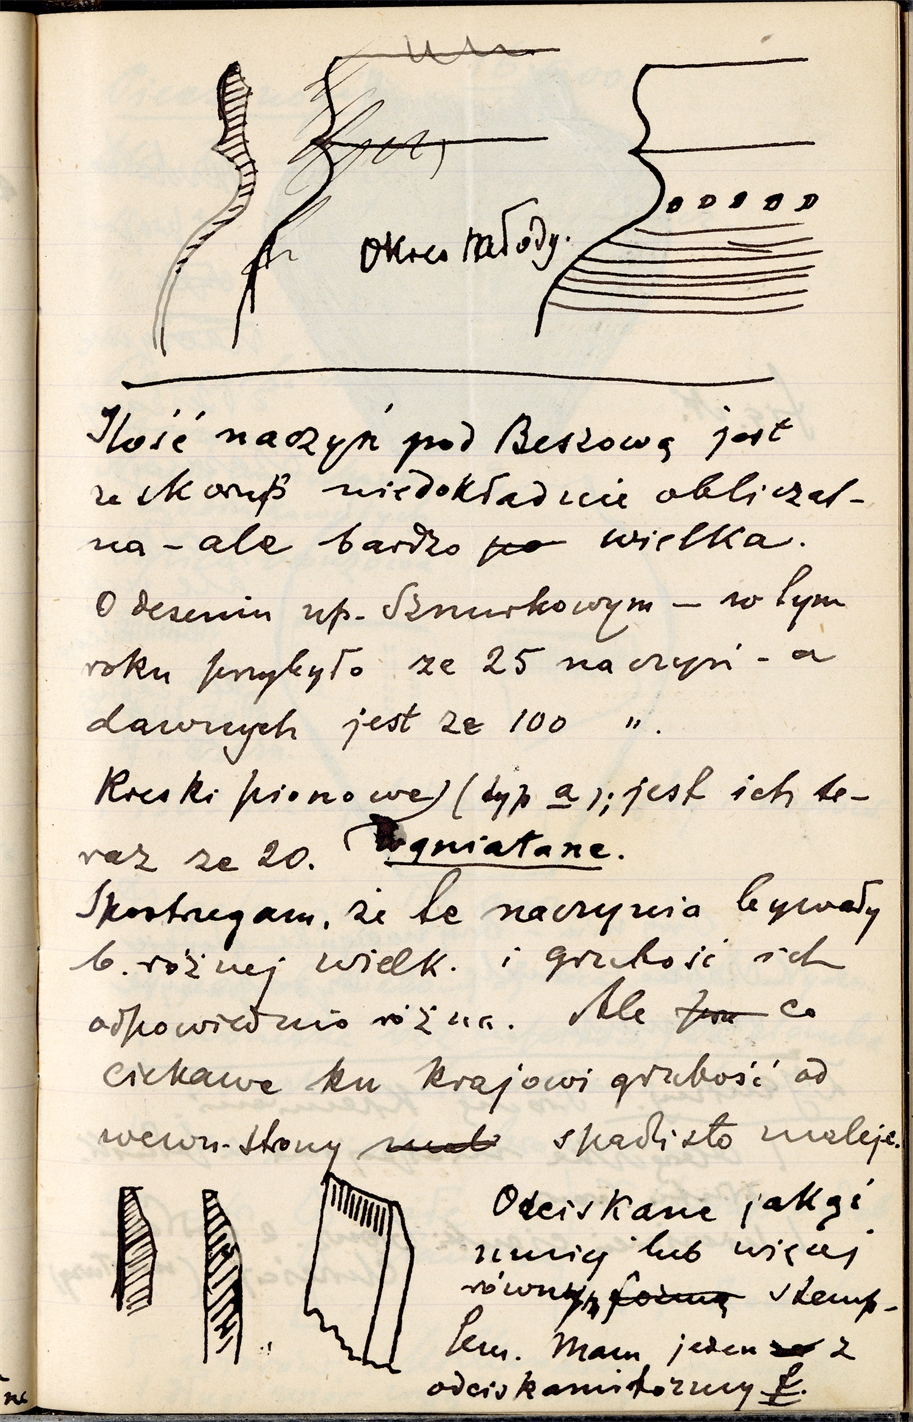 Okres młody.
Ilość naczyń pod Beszową jest
ze skorup niedokładnie obliczal-
na – ale bardzo po wielka.
O deseniu np. Sznurkowym – w tym
roku przybyło ze 25 naczyń – a
dawnych jest ze 100 ".
Kreski pionowe) (typ a); jest ich te-
raz ze 20. Wgniatane.
Spostrzegam, że te naczynia bywały
b. różnej wielk. i grubość ich
odpowiednio różna. Ale co
ciekawe ku krajowi grubość od
wewn. strony spadzisto maleje.
Odciskane jakgś
mniej lub więcej
równym formą stemp-
lem. Mam jeden ze z
odciskami formy